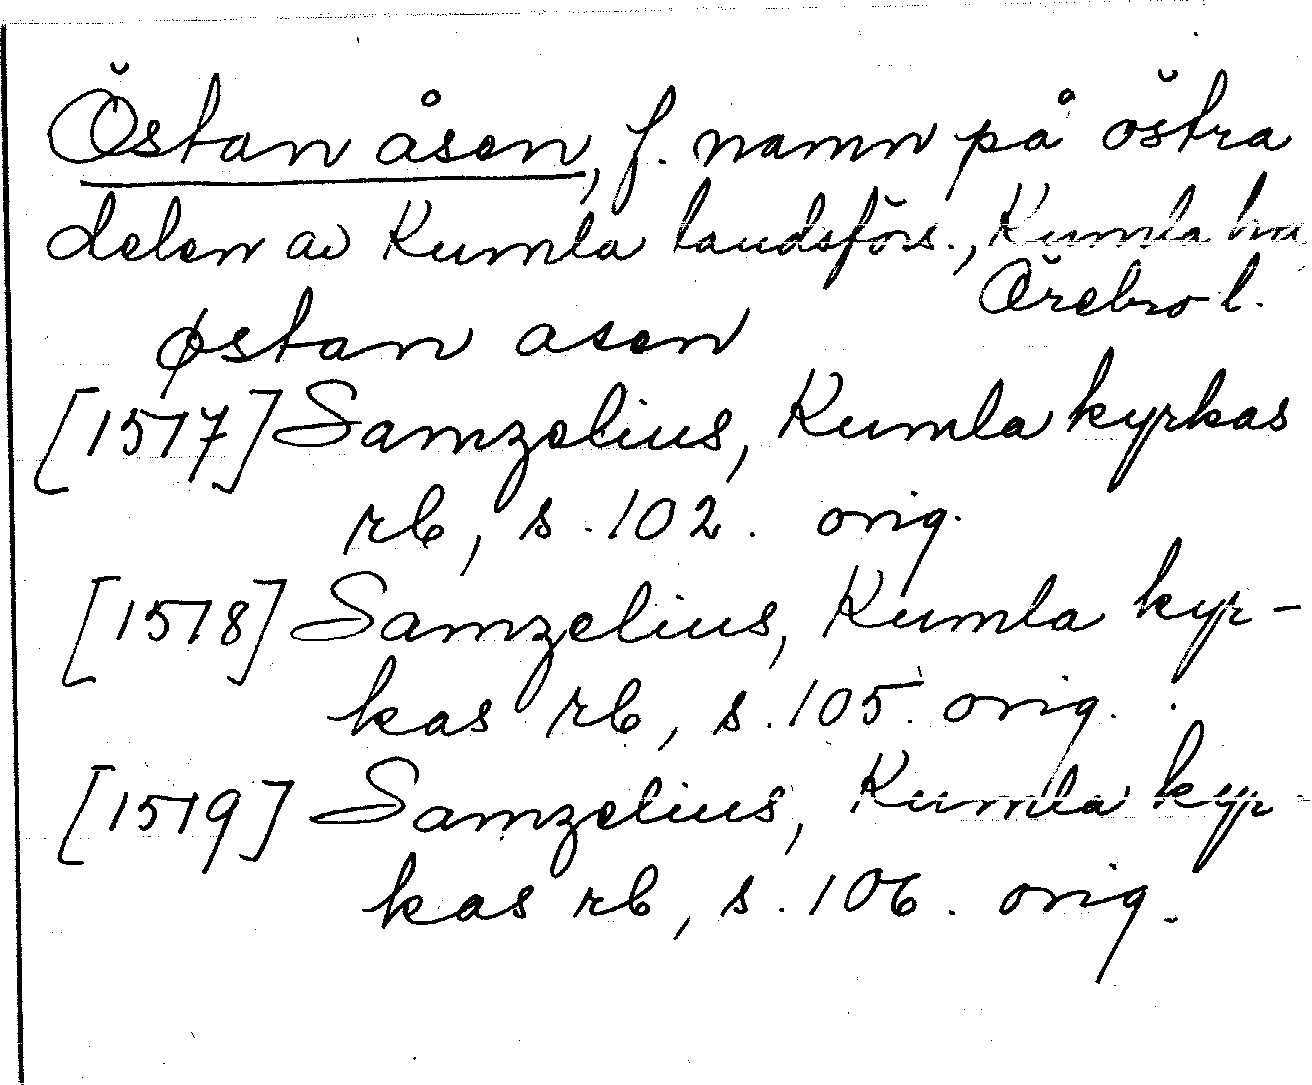 Östan åsen, f. namn på östra
delen av Kumla landsförs., Kumla hd
Örebro l.
østan asen
[1517] Samzelius, Kumla kyrkas
rb, s. 102. orig.
[1518] Samzelius, Kumla kyr-
kas rb, s. 105. orig.
[1519] Samzelius, Kumla kyr-
kas rb, s. 106. orig.